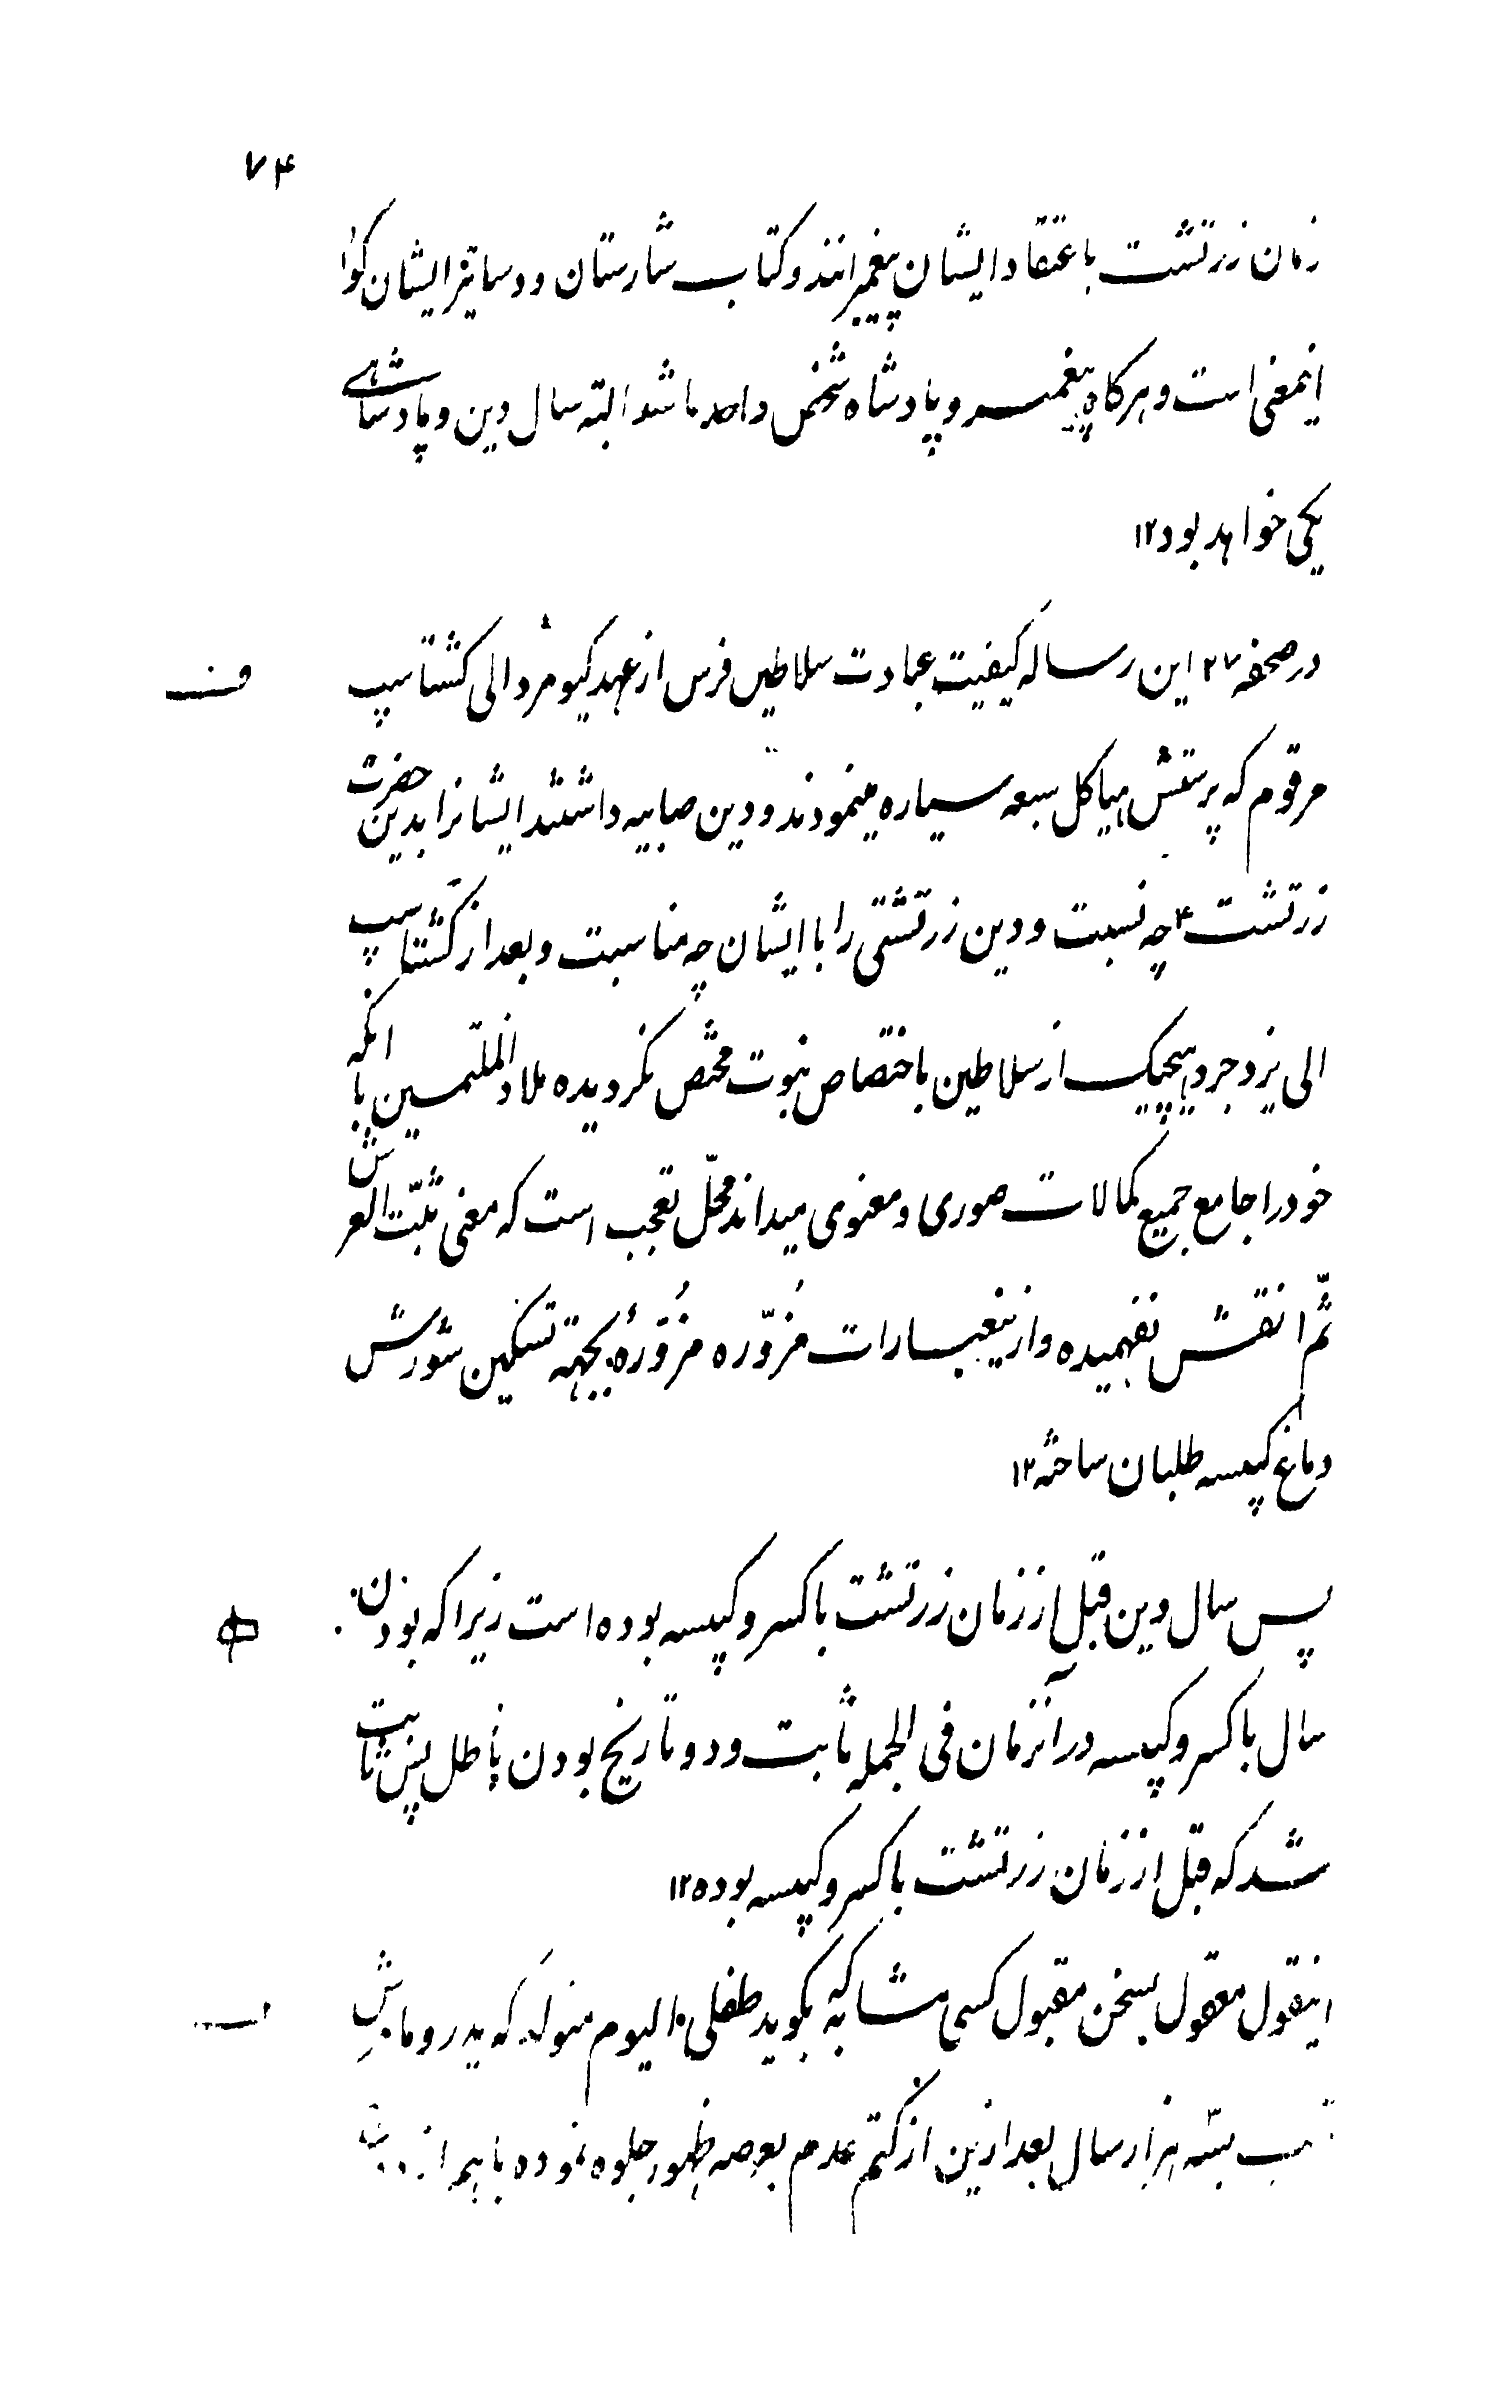 ۷۴
زمان زرتشت باعتقاد ایشان پیغمبرانند و کتاب شارستان و دساتیر ایشان گواه
اینمعنی است و هرگاه پیغمبر و پادشاه شخص واحد باشد البته سال دین و پادشاهی
یکی خواهد بود ۱۲
در صحفه ۲۷ این رساله کیفیت عبادت سلاطین فرس از عهد کیومرد الی کشتاسپ
مرقوم که پرستش هیاکل سبعه سیاره مینمودند و دین صابیه داشتند ایشانرا بدین حضرت
زرتشت ۴ چه نسبت و دین زرتشتی را با ایشان چه مناسبت و بعد از کشتاسپ
الی یزدجرد هیچیک از سلاطین باختصاص نبوت مختص نگردیده ملاذ الملتمسین با انکه
خود را جامع جمیع کمالات صوری و معنوی میداند محلّ تعجب است که معنی ثبّت العرش
ثمّ انقش نفهمیده و از ینعبارات مُزوّره مزُوّرهٔ بجهته تسکین شورش
دماغ کپیسه طلبان ساخته ۱۲
پس سال دین قبل از زمان زرتشت با کسر و کپیسه بوده است زیرا که بودن
سال با کسر و کپیسه در آنزمان فی الجمله ثابت و دو تاریخ بودن باطل پس ثابت
شد که قبل از زمان زرتشت با کسر و کپیسه بوده ۱۲
اینقول معقول بسخن مقبول کسی مشابه که بگوید طفلی الیوم متولد که پدر و مادرش
سه هزار سال بعد ازین از کتم عدم بعرصه ظهور جلوه نموده باهم